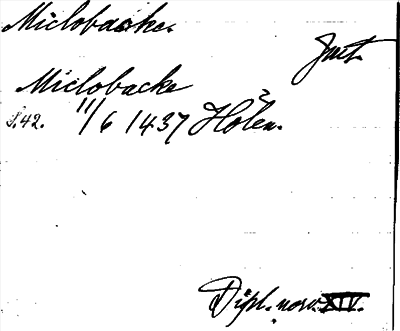 Miclobacke.
Just.
Miclobacke
S. 42. 11/6 1437 Hólen.
Dipl. norv. XIV.